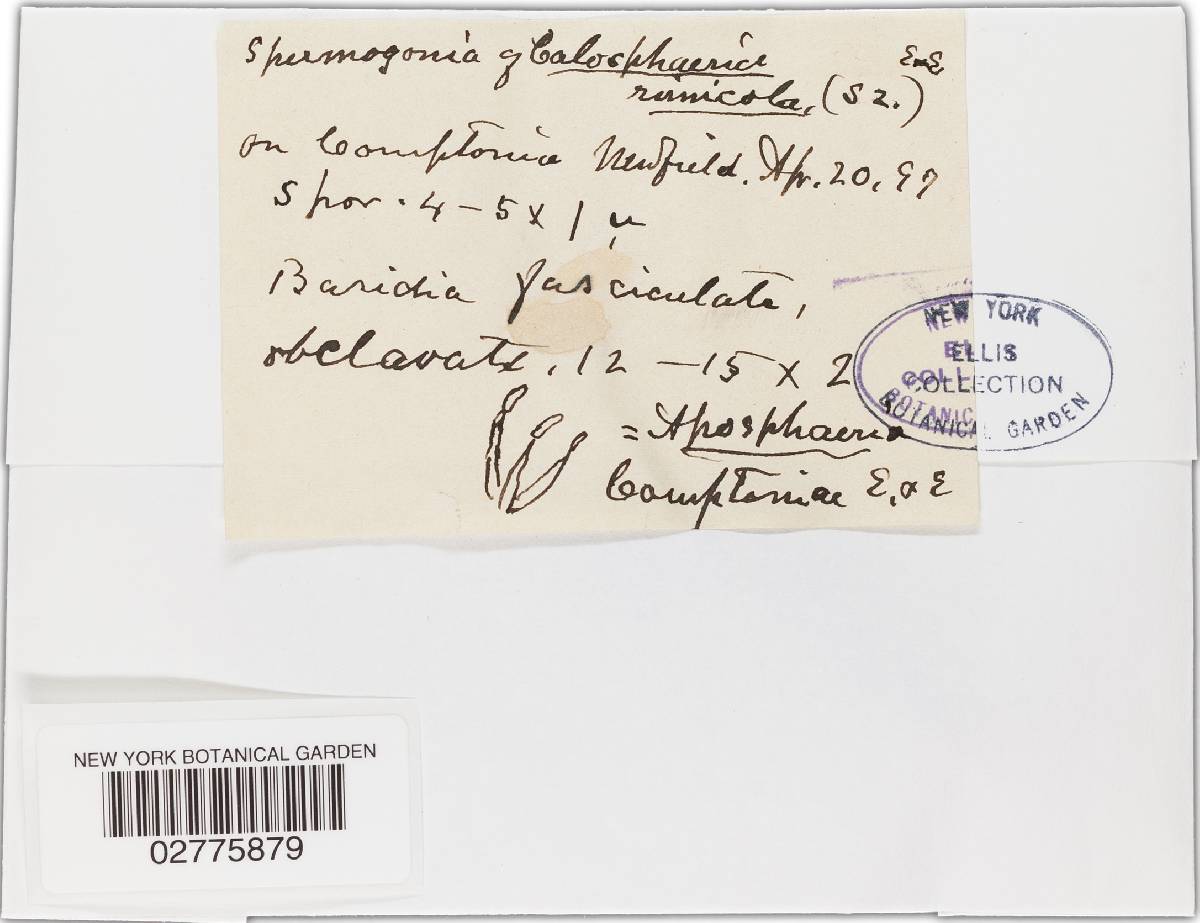 Spermogonia of Calosphaeria E & E
rimicola, (Sz.)
on Comptonia Newfield. Apr. 20, 97
Spor. 4-5 x 1 µ
Basidia fasciculate,
obclavate, 12-15 x 2
= Aposphaeria
Comptoniae E. & E
NEW YORK
ELLIS
COLLECTION
BOTANICAL GARDEN
NEW YORK BOTANICAL GARDEN
02775879